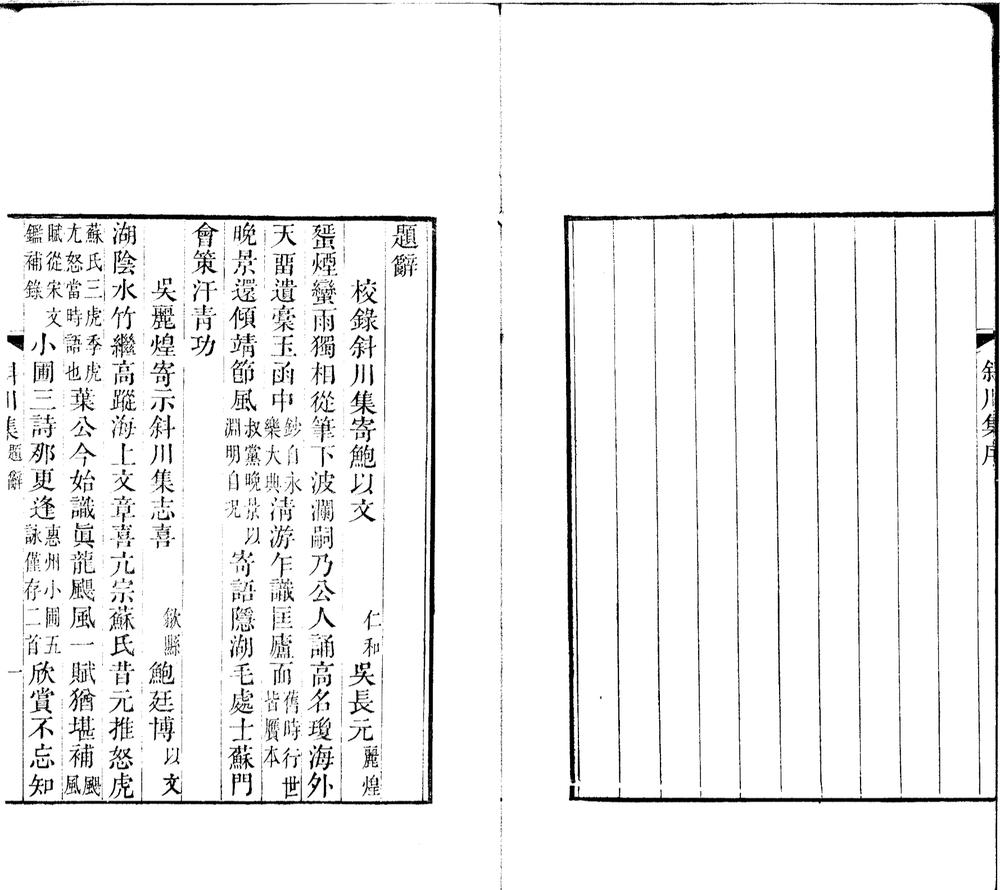 斜川集序
題辭
校錄斜川集寄鮑以文　仁和吳長元麗煌
蜑煙蠻雨獨相從筆下波瀾嗣乃公人誦高名瓊海外
天畱遺槀玉函中鈔自永樂大典清游乍識匡廬面舊時行世皆贋本
晚景還傾靖節風叔黨晚景以淵明自况寄語隱湖毛處士蘇門
會策汗靑功
吳麗煌寄示斜川集志喜　歙縣鮑廷博以文
湖陰水竹繼高蹤海上文章喜亢宗蘇氏昔元推怒虎
蘇氏三虎季虎尤怒當時語也葉公今始識眞龍颶風一賦猶堪補颶風
賦從宋文鑑補錄小圃三詩那更逢惠州小圃五詠僅存二首欣賞不忘知
斜川集題辭　一